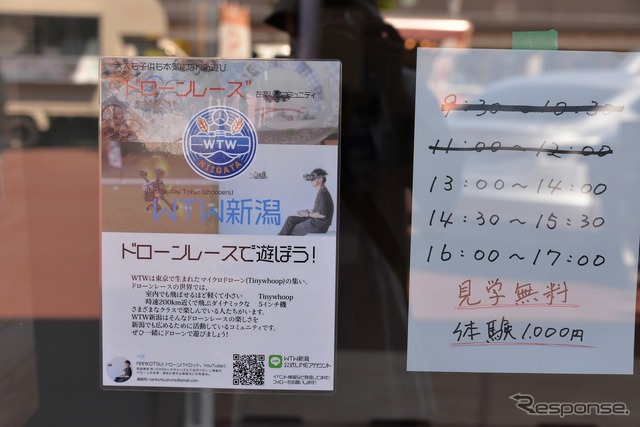 大人も子供も本気になれる遊び
"ドローンレース"
コミュニティ
WTW
NIIGATA
WTW新潟
ドローンレースで遊ぼう！
WTWは東京で生まれたマイクロドローン(Tinywhoop)の集い、
ドローンレースの世界では、
室内でも飛ばせるほど軽くて小さい Tinywhoop
時速200km近くで飛ぶダイナミックな 5インチ機
さまざまなクラスで楽しんでいる人たちがいます。
WTW新潟はそんなドローンレースの楽しさを
新潟でも広めるために活動しているコミュニティです。
ぜひ一緒にドローンで遊びましょう！
WTW新潟
公式LINEアカウント
イベント情報など発信してます！
フォローお願いします！
9:30〜10:30
11:00〜12:00
13:00〜14:00
14:30〜15:30
16:00〜17:00
見学無料
体験1,000円
Response.